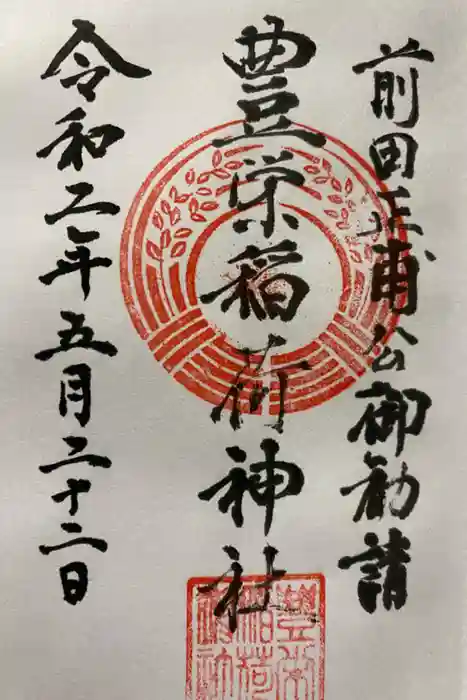 前田正甫公御勧請
豊栄稲荷神社
令和二年五月二十二日